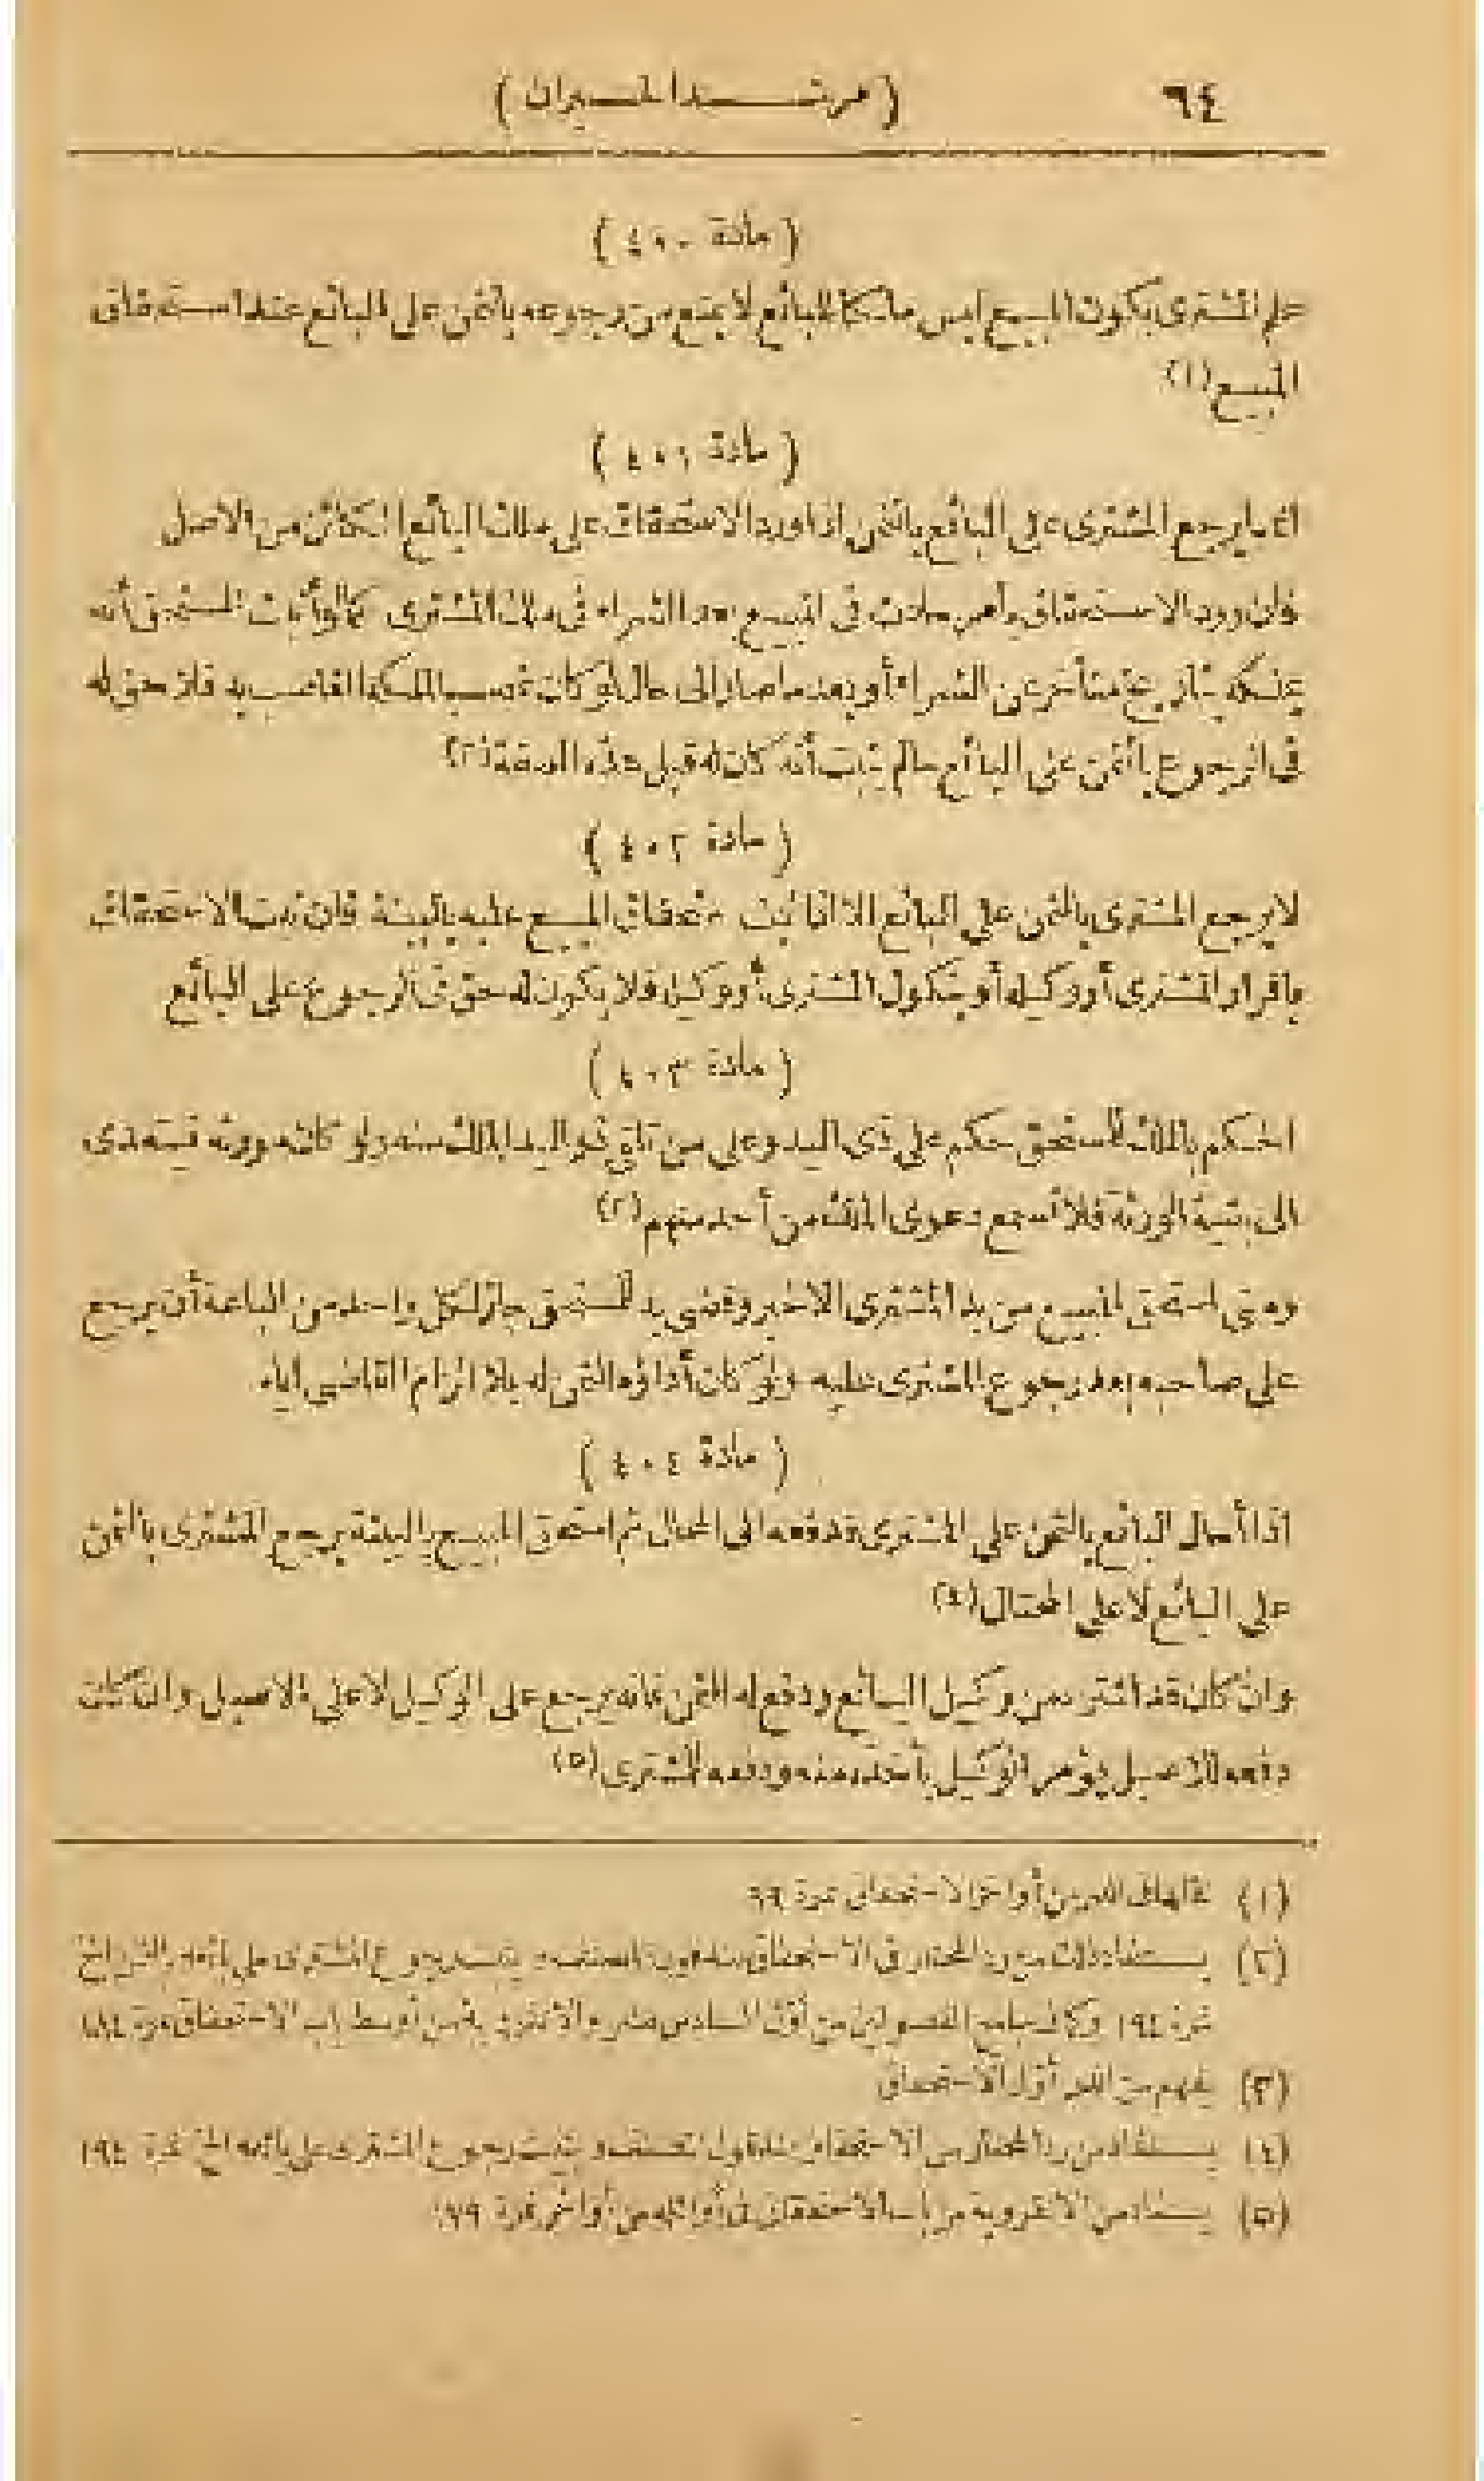 ٦٤ ( مرشد الحيران )
( مادة ٤٠٠ )
علم المشترى بكون المبيع ليس ملكا للبائع لا يمنع من رجوعه بالثمن على البائع عند استحقاق
المبيع (١)
( مادة ٤٠١ )
انما يرجع المشترى على البائع بالثمن اذا ورد الاستحقاق على ملك البائع الكائن من الاصل
فان ورد الاستحقاق بأمر حادث فى المبيع بعد الشراء فى ملك المشترى كما لو أثبت المستحق أنه
بتاريخ متأخر عن الشراء أو بعد ما صار الى حال لو كان غصبا لملكه الغاصب به فلا حق له
فى الرجوع بالثمن على البائع مالم يثبت أنه كان له قبل هذه الصفة (٢)
( مادة ٤٠٢ )
لا يرجع المشترى بالثمن على البائع الا اذا ثبت استحقاق المبيع عليه بالبينة فان ثبت الاستحقاق
باقرار المشترى أو وكيله أو بنكول المشترى أو وكيله فلا يكون له حق فى الرجوع على البائع
( مادة ٤٠٣ )
الحكم بالملك للمستحق حكم على ذى اليد وعلى من تلقى ذو اليد الملك منه ولو كان مورثه فيتعدى
الى بقية الورثة فلا تسمع دعوى الملك من أحد منهم (٣)
ومتى استحق المبيع من يد المشترى الاخير وقضى به للمستحق جاز لكل واحد من الباعة أن يرجع
على صاحبه بعد رجوع المشترى عليه ولو كان أداؤه الثمن له بلا الزام القاضى اياه
( مادة ٤٠٤ )
اذا أحال البائع بالثمن على المشترى فدفعه الى المحال ثم استحق المبيع بالبينة يرجع المشترى بالثمن
على البائع لا على المحتال (٤)
وان كان قد اشتراه من وكيل البائع ودفع له الثمن فانه يرجع على الوكيل لا على الاصيل وان كان
دفعه للاصيل يؤمر الوكيل بأخذه منه ودفعه للمشترى (٥)
(١) من أواخر الاستحقاق نمرة ٦٦
(٢) يستفاد ذلك من رد المحتار فى الاستحقاق عند قول المصنف ويثبت رجوع المشترى على بائعه بالثمن الخ
نمرة ١٩٤ وكما فى جامع الفصولين من أول السادس عشر والانقروية من أوسط باب الاستحقاق نمرة
(٣) يفهم من الدر أول الاستحقاق
(٤) يستفاد من رد المحتار من الاستحقاق عند قول المصنف ويثبت رجوع المشترى على بائعه الخ نمرة ١٩٤
(٥) يستفاد من الانقروية من باب الاستحقاق فى أوائله من أواخر نمرة